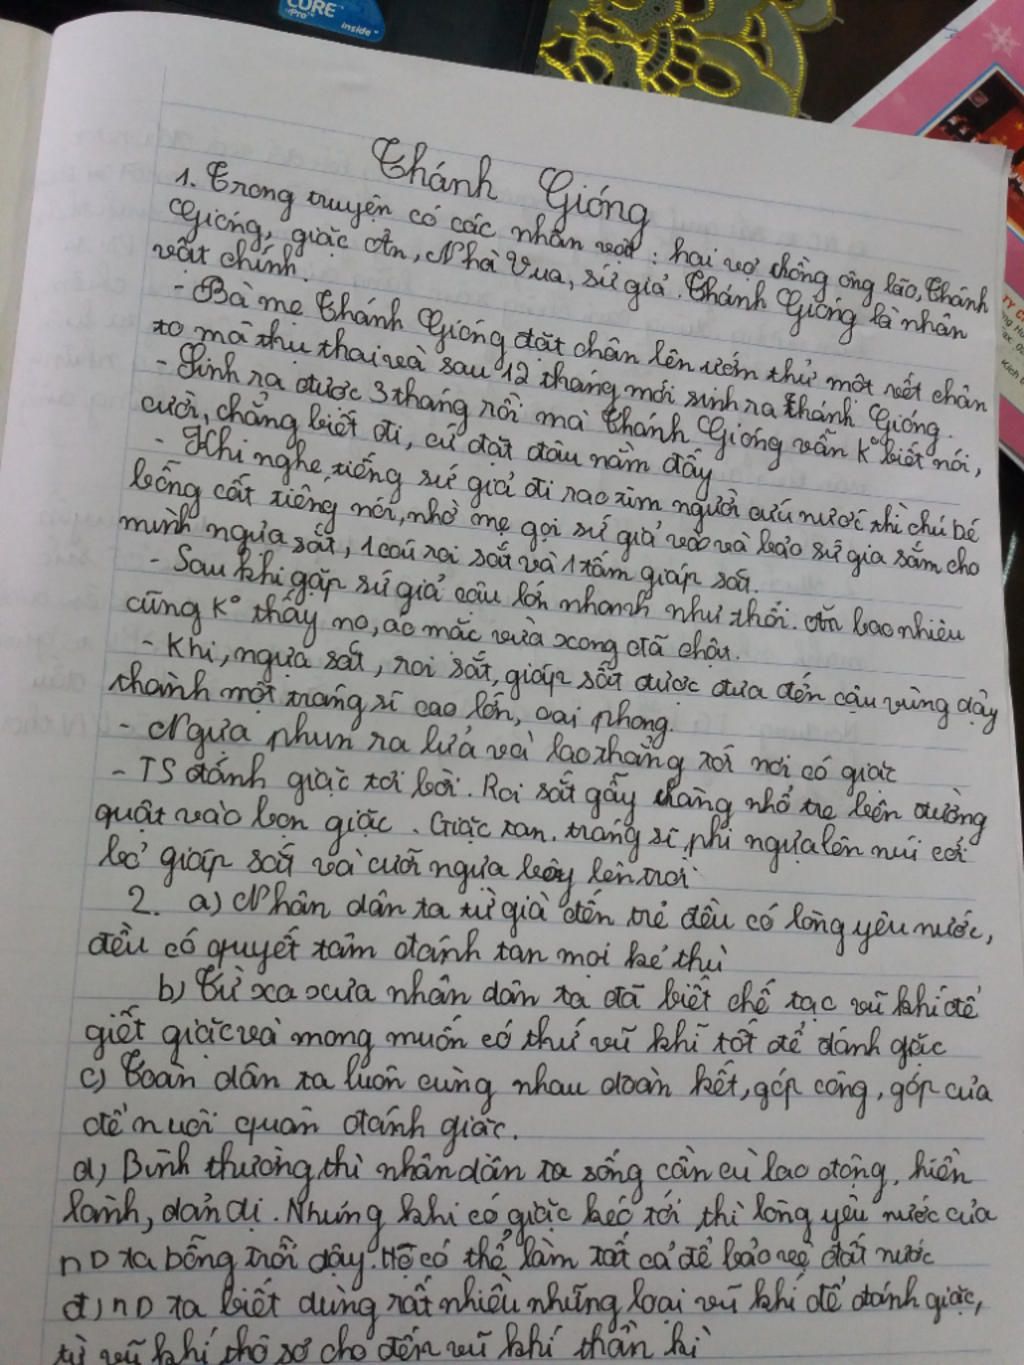 CORE
vPro
inside
Thánh Gióng
1. Trong truyện có các nhân vật : hai vợ chồng ông lão, Thánh
Gióng, giặc Ân, Nhà Vua, sứ giả. Thánh Gióng là nhân
vật chính.
- Bà mẹ Thánh Gióng đặt chân lên ướm thử một vết chân
to mà thụ thai và sau 12 tháng mới sinh ra Thánh Gióng.
- Sinh ra được 3 tháng rồi mà Thánh Gióng vẫn K° biết nói,
cười, chẳng biết đi, cứ đặt đâu nằm đấy
- Khi nghe tiếng sứ giả đi rao tìm người cứu nước thì chú bé
bỗng cất tiếng nói, nhờ mẹ gọi sứ giả vào và bảo sứ gia sắm cho
mình ngựa sắt, 1 cái roi sắt và 1 tấm giáp sắt.
- Sau khi gặp sứ giả cậu lớn nhanh như thổi. Ăn bao nhiêu
cũng K° thấy no, áo mặc vừa xong đã chật.
- Khi, ngựa sắt, roi sắt, giáp sắt được đưa đến cậu vùng dậy
thành một tráng sĩ cao lớn, oai phong.
- Ngựa phun ra lửa và lao thẳng tới nơi có giặc
- TS đánh giặc tơi bời. Roi sắt gẫy chàng nhổ tre bên đường
quật vào bọn giặc. Giặc tan. tráng sĩ phi ngựa lên núi cởi
bỏ giáp sắt và cưỡi ngựa bay lên trời
2. a) Nhân dân ta từ già đến trẻ đều có lòng yêu nước,
đều có quyết tâm đánh tan mọi kẻ thù
b) Từ xa xưa nhân dân ta đã biết chế tạc vũ khí để
giết giặc và mong muốn có thứ vũ khí tốt để đánh giặc
c) Toàn dân ta luôn cùng nhau đoàn kết, góp công, góp của
để nuôi quân đánh giặc.
d) Bình thường thì nhân dân ta sống cần cù lao động, hiền
lành, dản dị. Nhưng khi có giặc kéo tới thì lòng yêu nước của
nD ta bỗng trỗi dậy. Họ có thể làm tất cả để bảo vệ đất nước
đ) nD ta biết dùng rất nhiều những loại vũ khí để đánh giặc,
từ vũ khí thô sơ cho đến vũ khí thần kì